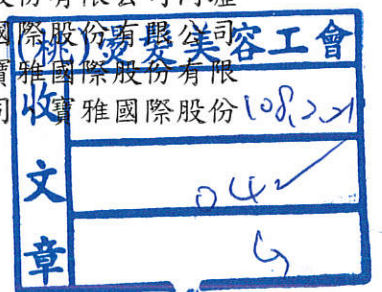 股份有限公司
國際股份有限公司
寶雅國際股份有限
司 寶雅國際股份
(桃)
美容工會
收文章
108.2.21
04